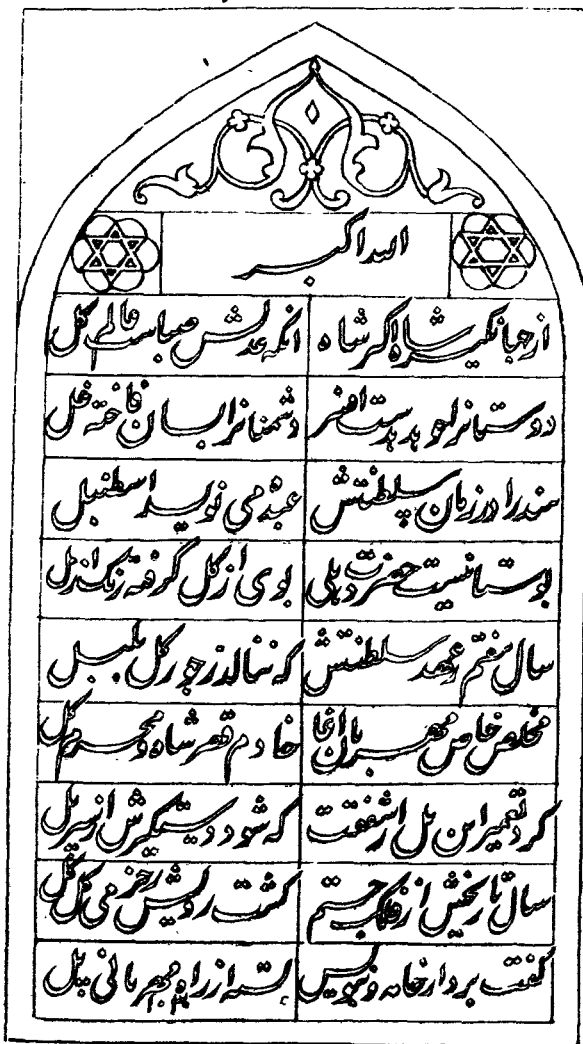 الله اکبر
از جهانگیر شاه اکبر شاه آنکه عدلش صباست عالم گل
دوستانرا چو هدهدست افسر دشمنانرا بسان فاخته غل
هند را در زمان سلطنتش عبده می نویسد اسطنبل
بوستانیست حضرت دهلی بوی از گل گرفته رنگ از مل
سال هفتم ز عهد سلطنتش که ننالد ز جور گل بلبل
مخلص خاص مهربان آغا خادم قصر شاه و محرم کل
کرد تعمیر این پل از شفقت که شود دستگیرش از سر پل
سال تاریخش از فلک جستم گشت رویش ز خرمی گل گل
گفت بردار خامه و بنویس بسته از راه مهربانی پل